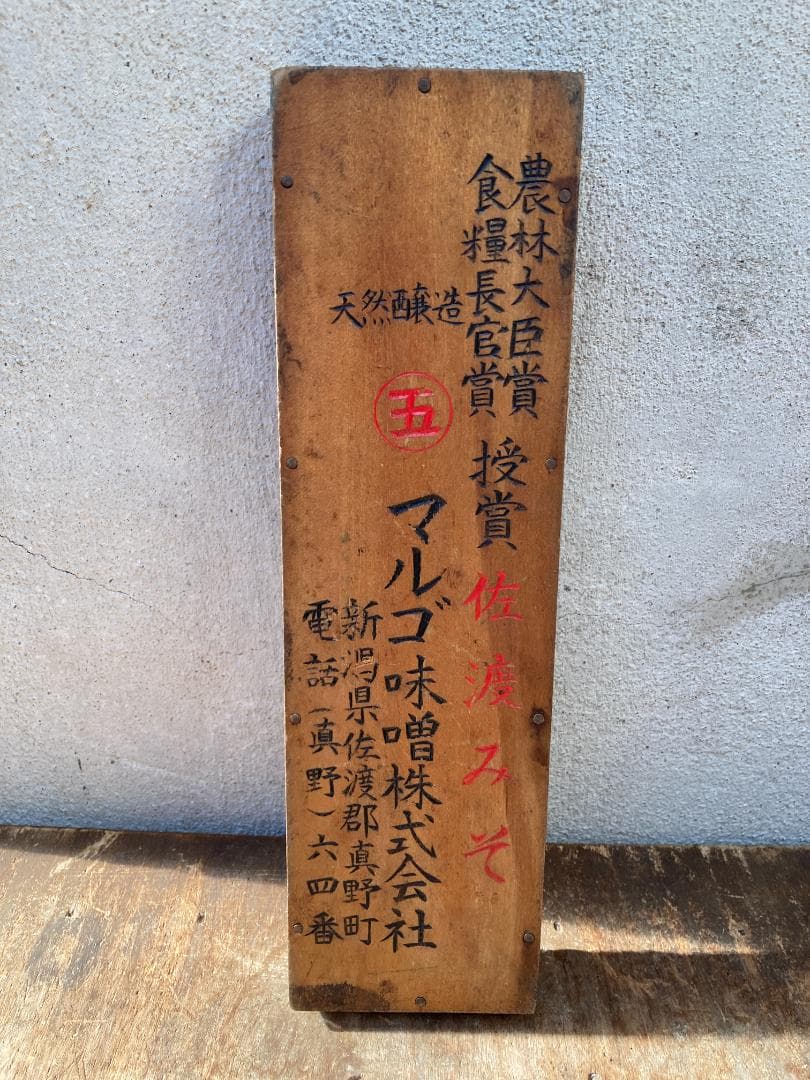 農林大臣賞
食糧長官賞
授賞
佐渡みそ
天然醸造
五
マルゴ味噌株式会社
新潟県佐渡郡真野町
電話(真野)六四番